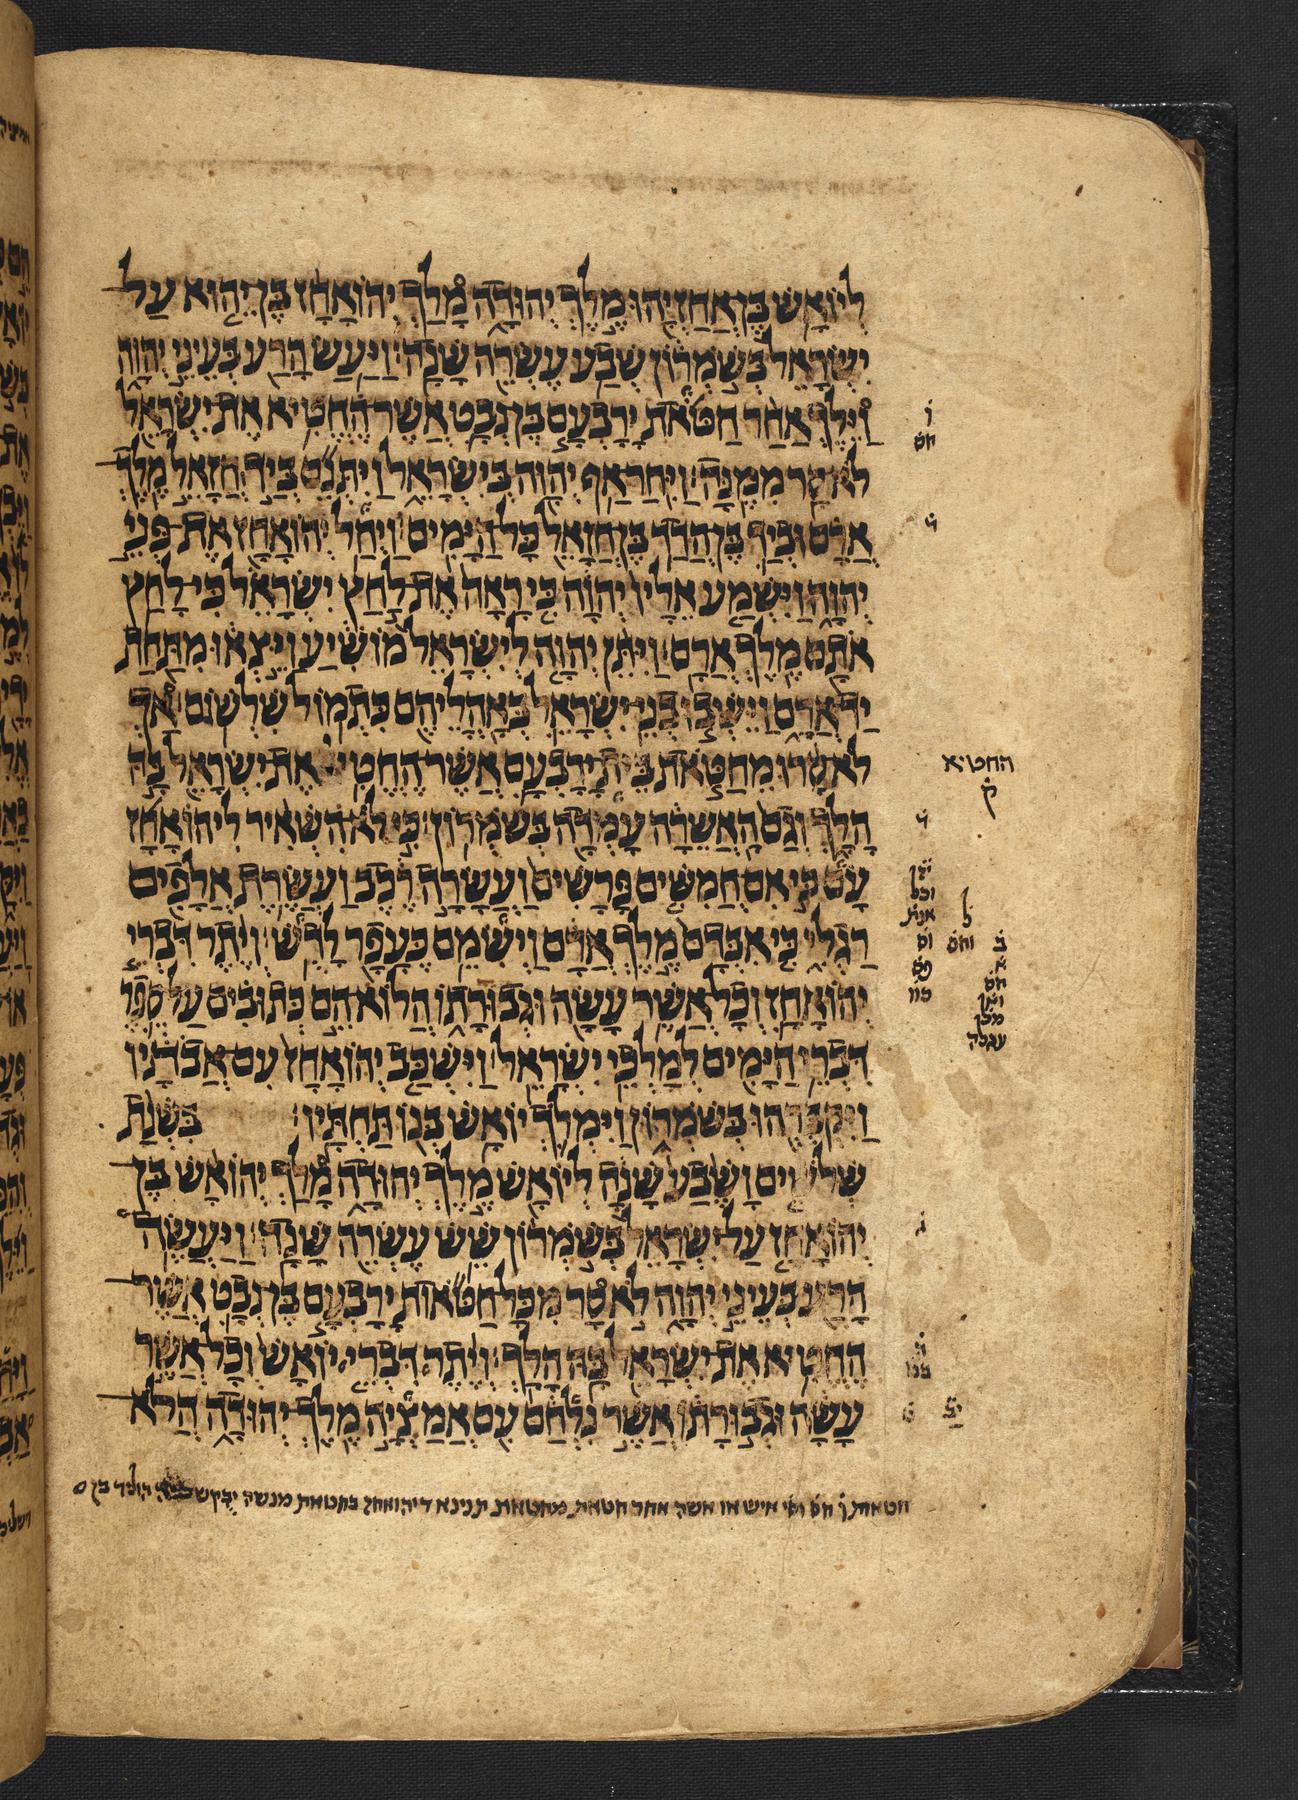 לְיוֹאָשׁ בֶּן אֲחַזְיָהוּ מֶלֶךְ יְהוּדָה מָלַךְ יְהוֹאָחָז בֶּן יֵהוּא עַל
יִשְׂרָאֵל בְּשֹׁמְרוֹן שְׁבַע עֶשְׂרֵה שָׁנָה׃ וַיַּעַשׂ הָרַע בְּעֵינֵי יְהוָה
וַיֵּלֶךְ אַחַר חַטֹּאת יָרָבְעָם בֶּן נְבָט אֲשֶׁר הֶחֱטִיא אֶת יִשְׂרָאֵל
לֹא סָר מִמֶּנָּה׃ וַיִּחַר אַף יְהוָה בְּיִשְׂרָאֵל וַיִּתְּנֵם בְּיַד חֲזָאֵל מֶלֶךְ
אֲרָם וּבְיַד בֶּן הֲדַד בֶּן חֲזָאֵל כָּל הַיָּמִים׃ וַיְחַל יְהוֹאָחָז אֶת פְּנֵי
יְהוָה וַיִּשְׁמַע אֵלָיו יְהוָה כִּי רָאָה אֶת לַחַץ יִשְׂרָאֵל כִּי לָחַץ
אֹתָם מֶלֶךְ אֲרָם׃ וַיִּתֵּן יְהוָה לְיִשְׂרָאֵל מוֹשִׁיעַ וַיֵּצְאוּ מִתַּחַת
יַד אֲרָם וַיֵּשְׁבוּ בְנֵי יִשְׂרָאֵל בְּאָהֳלֵיהֶם כִּתְמוֹל שִׁלְשׁוֹם׃ אַךְ
לֹא סָרוּ מֵחַטֹּאת בֵּית יָרָבְעָם אֲשֶׁר הֶחֱטִי אֶת יִשְׂרָאֵל בָּהּ
הָלָךְ וְגַם הָאֲשֵׁרָה עָמְדָה בְּשֹׁמְרוֹן׃ כִּי לֹא הִשְׁאִיר לִיהוֹאָחָז
עָם כִּי אִם חֲמִשִּׁים פָּרָשִׁים וַעֲשָׂרָה רֶכֶב וַעֲשֶׂרֶת אֲלָפִים
רַגְלִי כִּי אִבְּדָם מֶלֶךְ אֲרָם וַיְשִׂמֵם כֶּעָפָר לָדֻשׁ׃ וְיֶתֶר דִּבְרֵי
יְהוֹאָחָז וְכָל אֲשֶׁר עָשָׂה וּגְבוּרָתוֹ הֲלוֹא הֵם כְּתוּבִים עַל סֵפֶר
דִּבְרֵי הַיָּמִים לְמַלְכֵי יִשְׂרָאֵל׃ וַיִּשְׁכַּב יְהוֹאָחָז עִם אֲבֹתָיו
וַיִּקְבְּרֻהוּ בְּשֹׁמְרוֹן וַיִּמְלֹךְ יוֹאָשׁ בְּנוֹ תַּחְתָּיו׃ בִּשְׁנַת
שְׁלֹשִׁים וָשֶׁבַע שָׁנָה לְיוֹאָשׁ מֶלֶךְ יְהוּדָה מָלַךְ יְהוֹאָשׁ בֶּן
יְהוֹאָחָז עַל יִשְׂרָאֵל בְּשֹׁמְרוֹן שֵׁשׁ עֶשְׂרֵה שָׁנָה׃ וַיַּעֲשֶׂה
הָרַע בְּעֵינֵי יְהוָה לֹא סָר מִכָּל חַטֹּאות יָרָבְעָם בֶּן נְבָט אֲשֶׁר
הֶחֱטִיא אֶת יִשְׂרָאֵל בָּהּ הָלָךְ׃ וְיֶתֶר דִּבְרֵי יוֹאָשׁ וְכָל אֲשֶׁר
עָשָׂה וּגְבוּרָתוֹ אֲשֶׁר נִלְחַם עִם אֲמַצְיָה מֶלֶךְ יְהוּדָה הֲלֹא
ו
חס
החטיא
ק
חטאת ו חס איש או אשה אחר חטאת מחטאת תנינא דיהואחז בחטאת מנשה יבקש